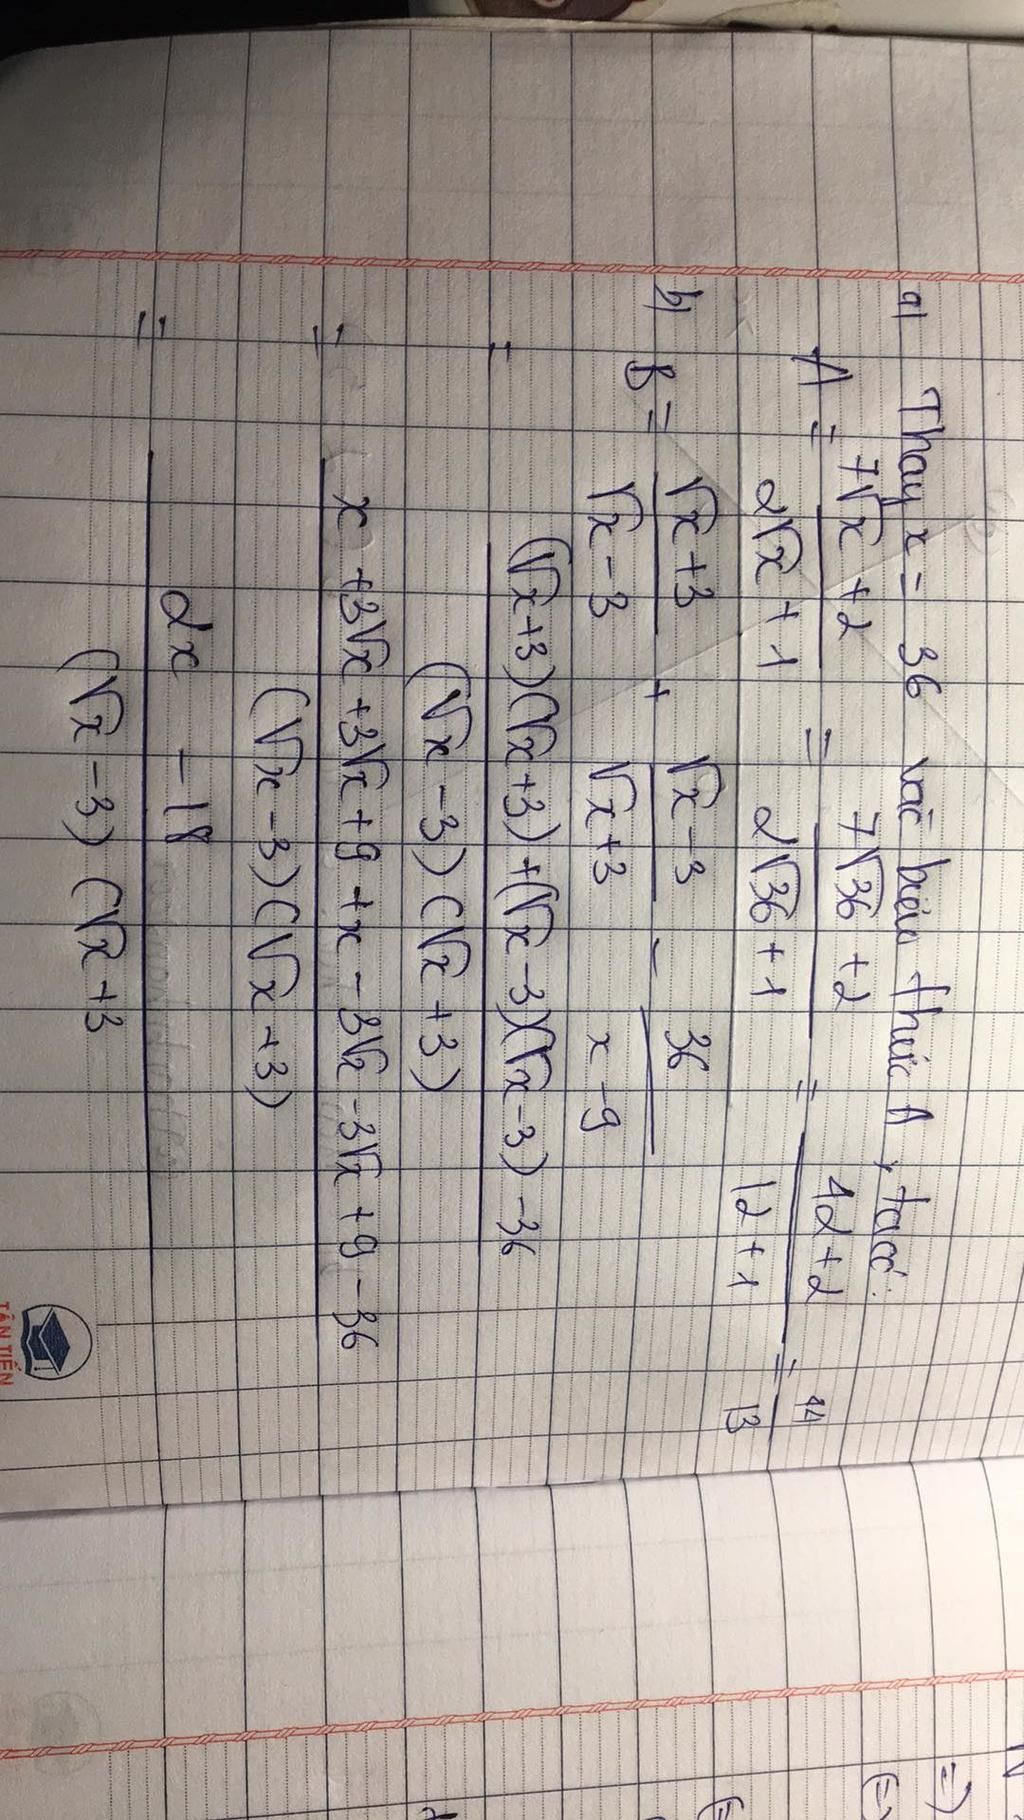 a) Thay x = 36 vào biểu thức A, ta có:
A = (7√x + 2)/(2√x + 1) = (7√36 + 2)/(2√36 + 1) = (42 + 2)/(12 + 1) = 44/13
b) B = (√x + 3)/(√x - 3) + (√x - 3)/(√x + 3) - 36/(x - 9)
= ((√x + 3)(√x + 3) + (√x - 3)(√x - 3) - 36)/((√x - 3)(√x + 3))
= (x + 3√x + 3√x + 9 + x - 3√x - 3√x + 9 - 36)/((√x - 3)(√x + 3))
= (2x - 18)/((√x - 3)(√x + 3)
TÂN TIẾN